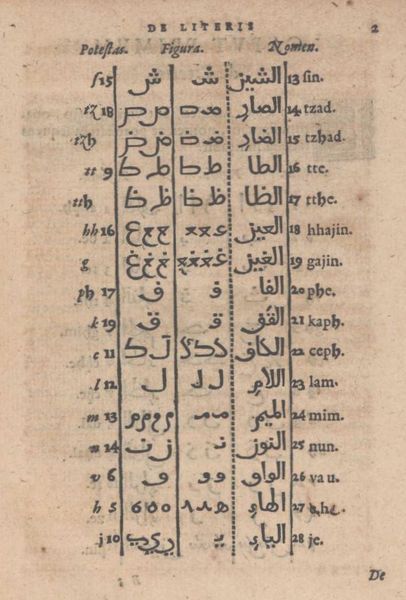 DE LITERIS 2
Potestas. Figura. Nomen.
ſ 15 ش ش الشين 13 ſin.
tz 18 ص ص الصاد 14 tzad.
tzh ض ض الضاد 15 tzhad.
tt 9 ط ط ط ط الطا 16 tte.
tth ظ ظ ظ ظ الظا 17 tthe.
hh 16 ع ع ع ع ع ع العين 18 hhajin.
g غ غ غ غ غ غ الغين 19 gajin.
ph 17 ف ف الفا 20 phe.
k 19 ق ق القق 21 kaph.
c 11 ك ك ك ك الكاف 22 ceph.
l 12 ل ل ل اللام 23 lam.
m 13 م م م م م الميم 24 mim.
n 14 ن ن ن النون 25 nun.
v 6 و و و الواو 26 vau.
h 5 ه ه ه ه ه ه الهاء 27 he.
j 10 ي ي ي الياء 28 je.
De